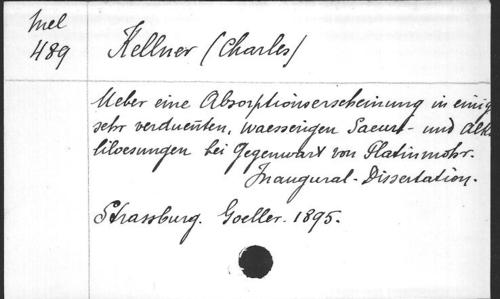 Mel
489
Kellner (Charles)
Ueber eine Absorptionserscheinung in einig
sehr verduennten, waesserigen Saeure- und Alka
liloesungen bei Gegenwart von Platinmohr.
Inaugural-Dissertation.
Strassburg. Goeller. 1895.